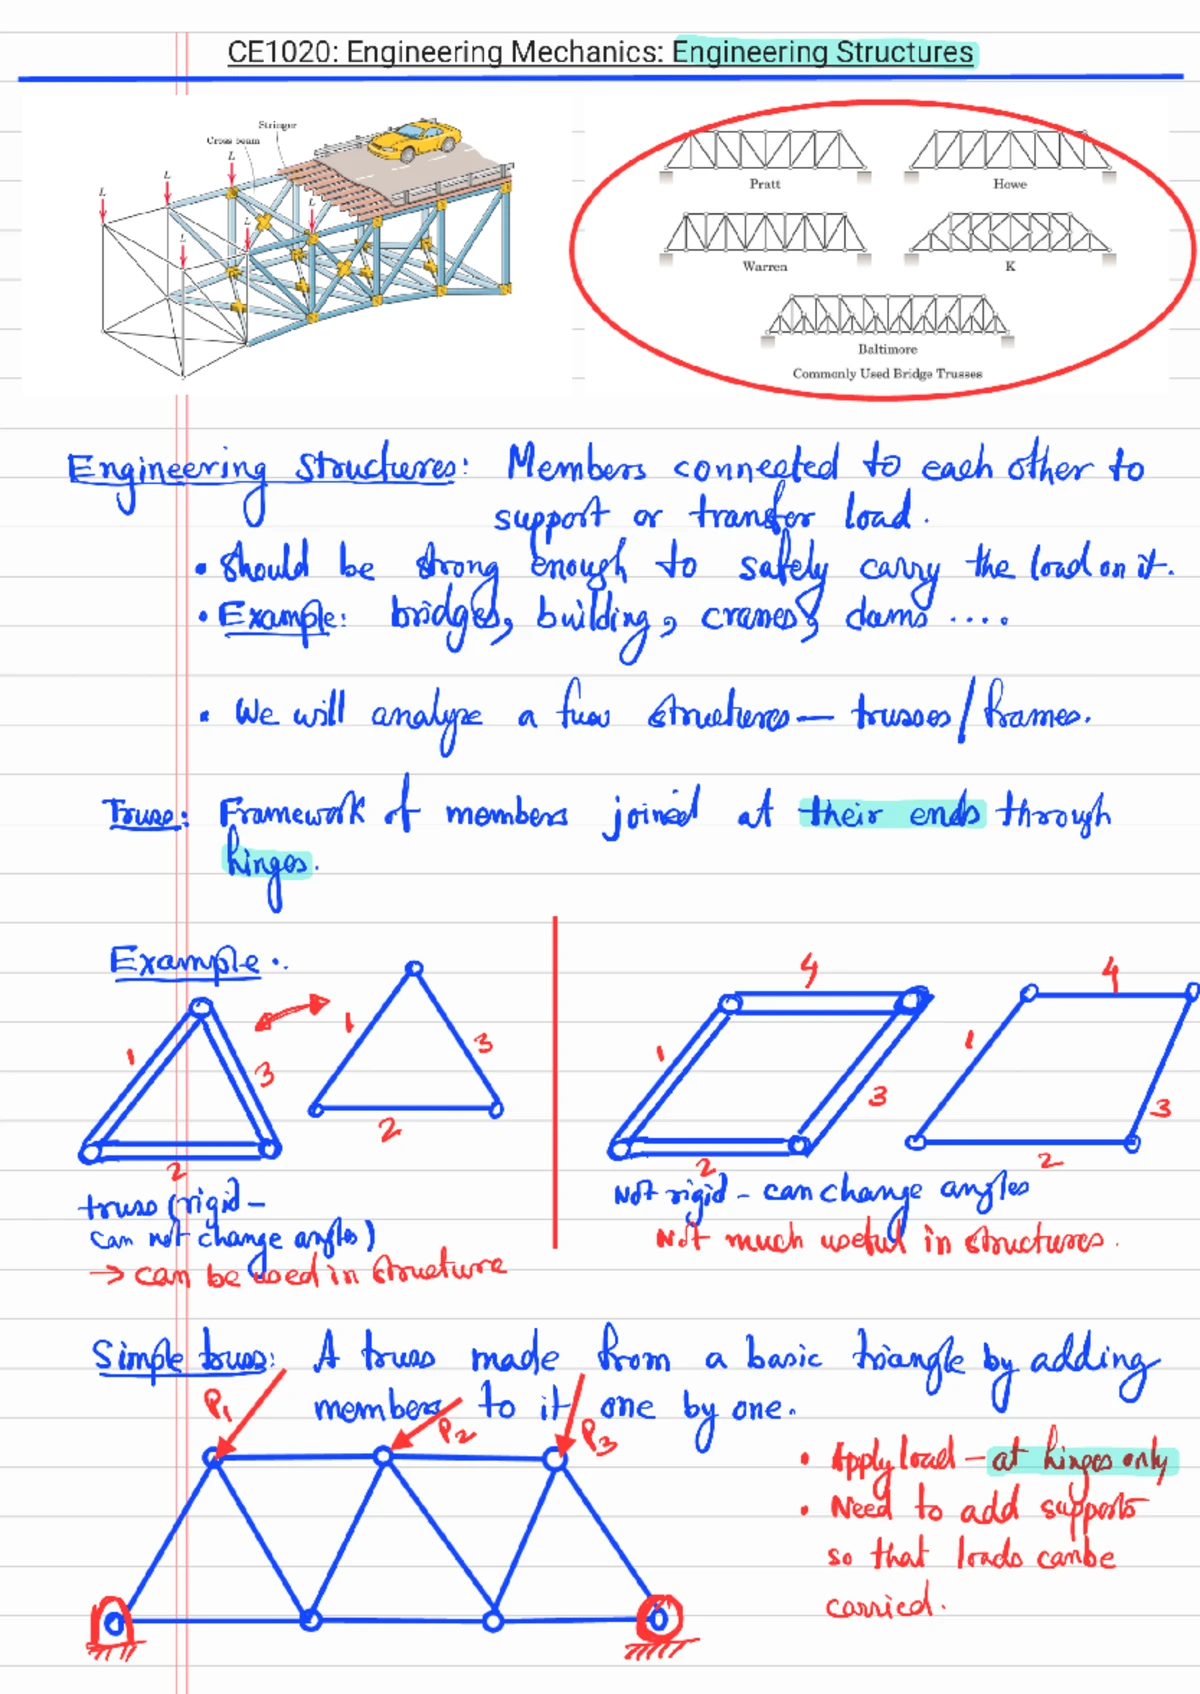 CE1020: Engineering Mechanics: Engineering Structures
Stringer
Cross beam
L
L
L
L
L
L
Pratt
Howe
Warren
K
Baltimore
Commonly Used Bridge Trusses
Engineering Structures: Members connected to each other to
support or transfer load.
• Should be strong enough to safely carry the load on it.
• Example: bridges, building, cranes, dams ....
• We will analyze a few structures — trusses/frames.
Truss: Framework of members joined at their ends through
hinges.
Example :
1
3
2
1
3
2
truss (rigid -
can not change angles)
→ can be used in structure
4
1
3
2
4
1
3
2
Not rigid - can change angles
Not much useful in structures.
Simple truss: A truss made from a basic triangle by adding
members to it one by one.
P1
P2
P3
• Apply load - at hinges only
• Need to add supports
so that loads can be
carried.